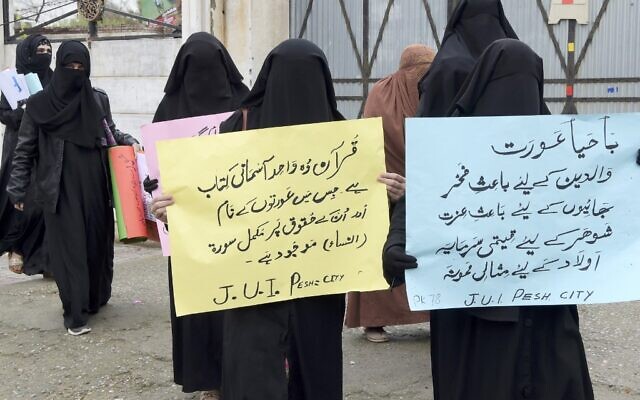 قرآن وہ واحد آسمانی کتاب
ہے جس میں عورتوں کے نام
اور اُن کے حقوق پر مکمل سورۃ
(النساء) موجود ہے۔
J.U.I PESH CITY
با حیا عورت
والدین کے لیئے باعث فخر
بھائیوں کے لیئے باعث عزت
شوہر کے لیئے قیمتی سرمایہ
اولاد کے لیئے مثالی نمونہ
PK 78
J.U.I PESH CITY